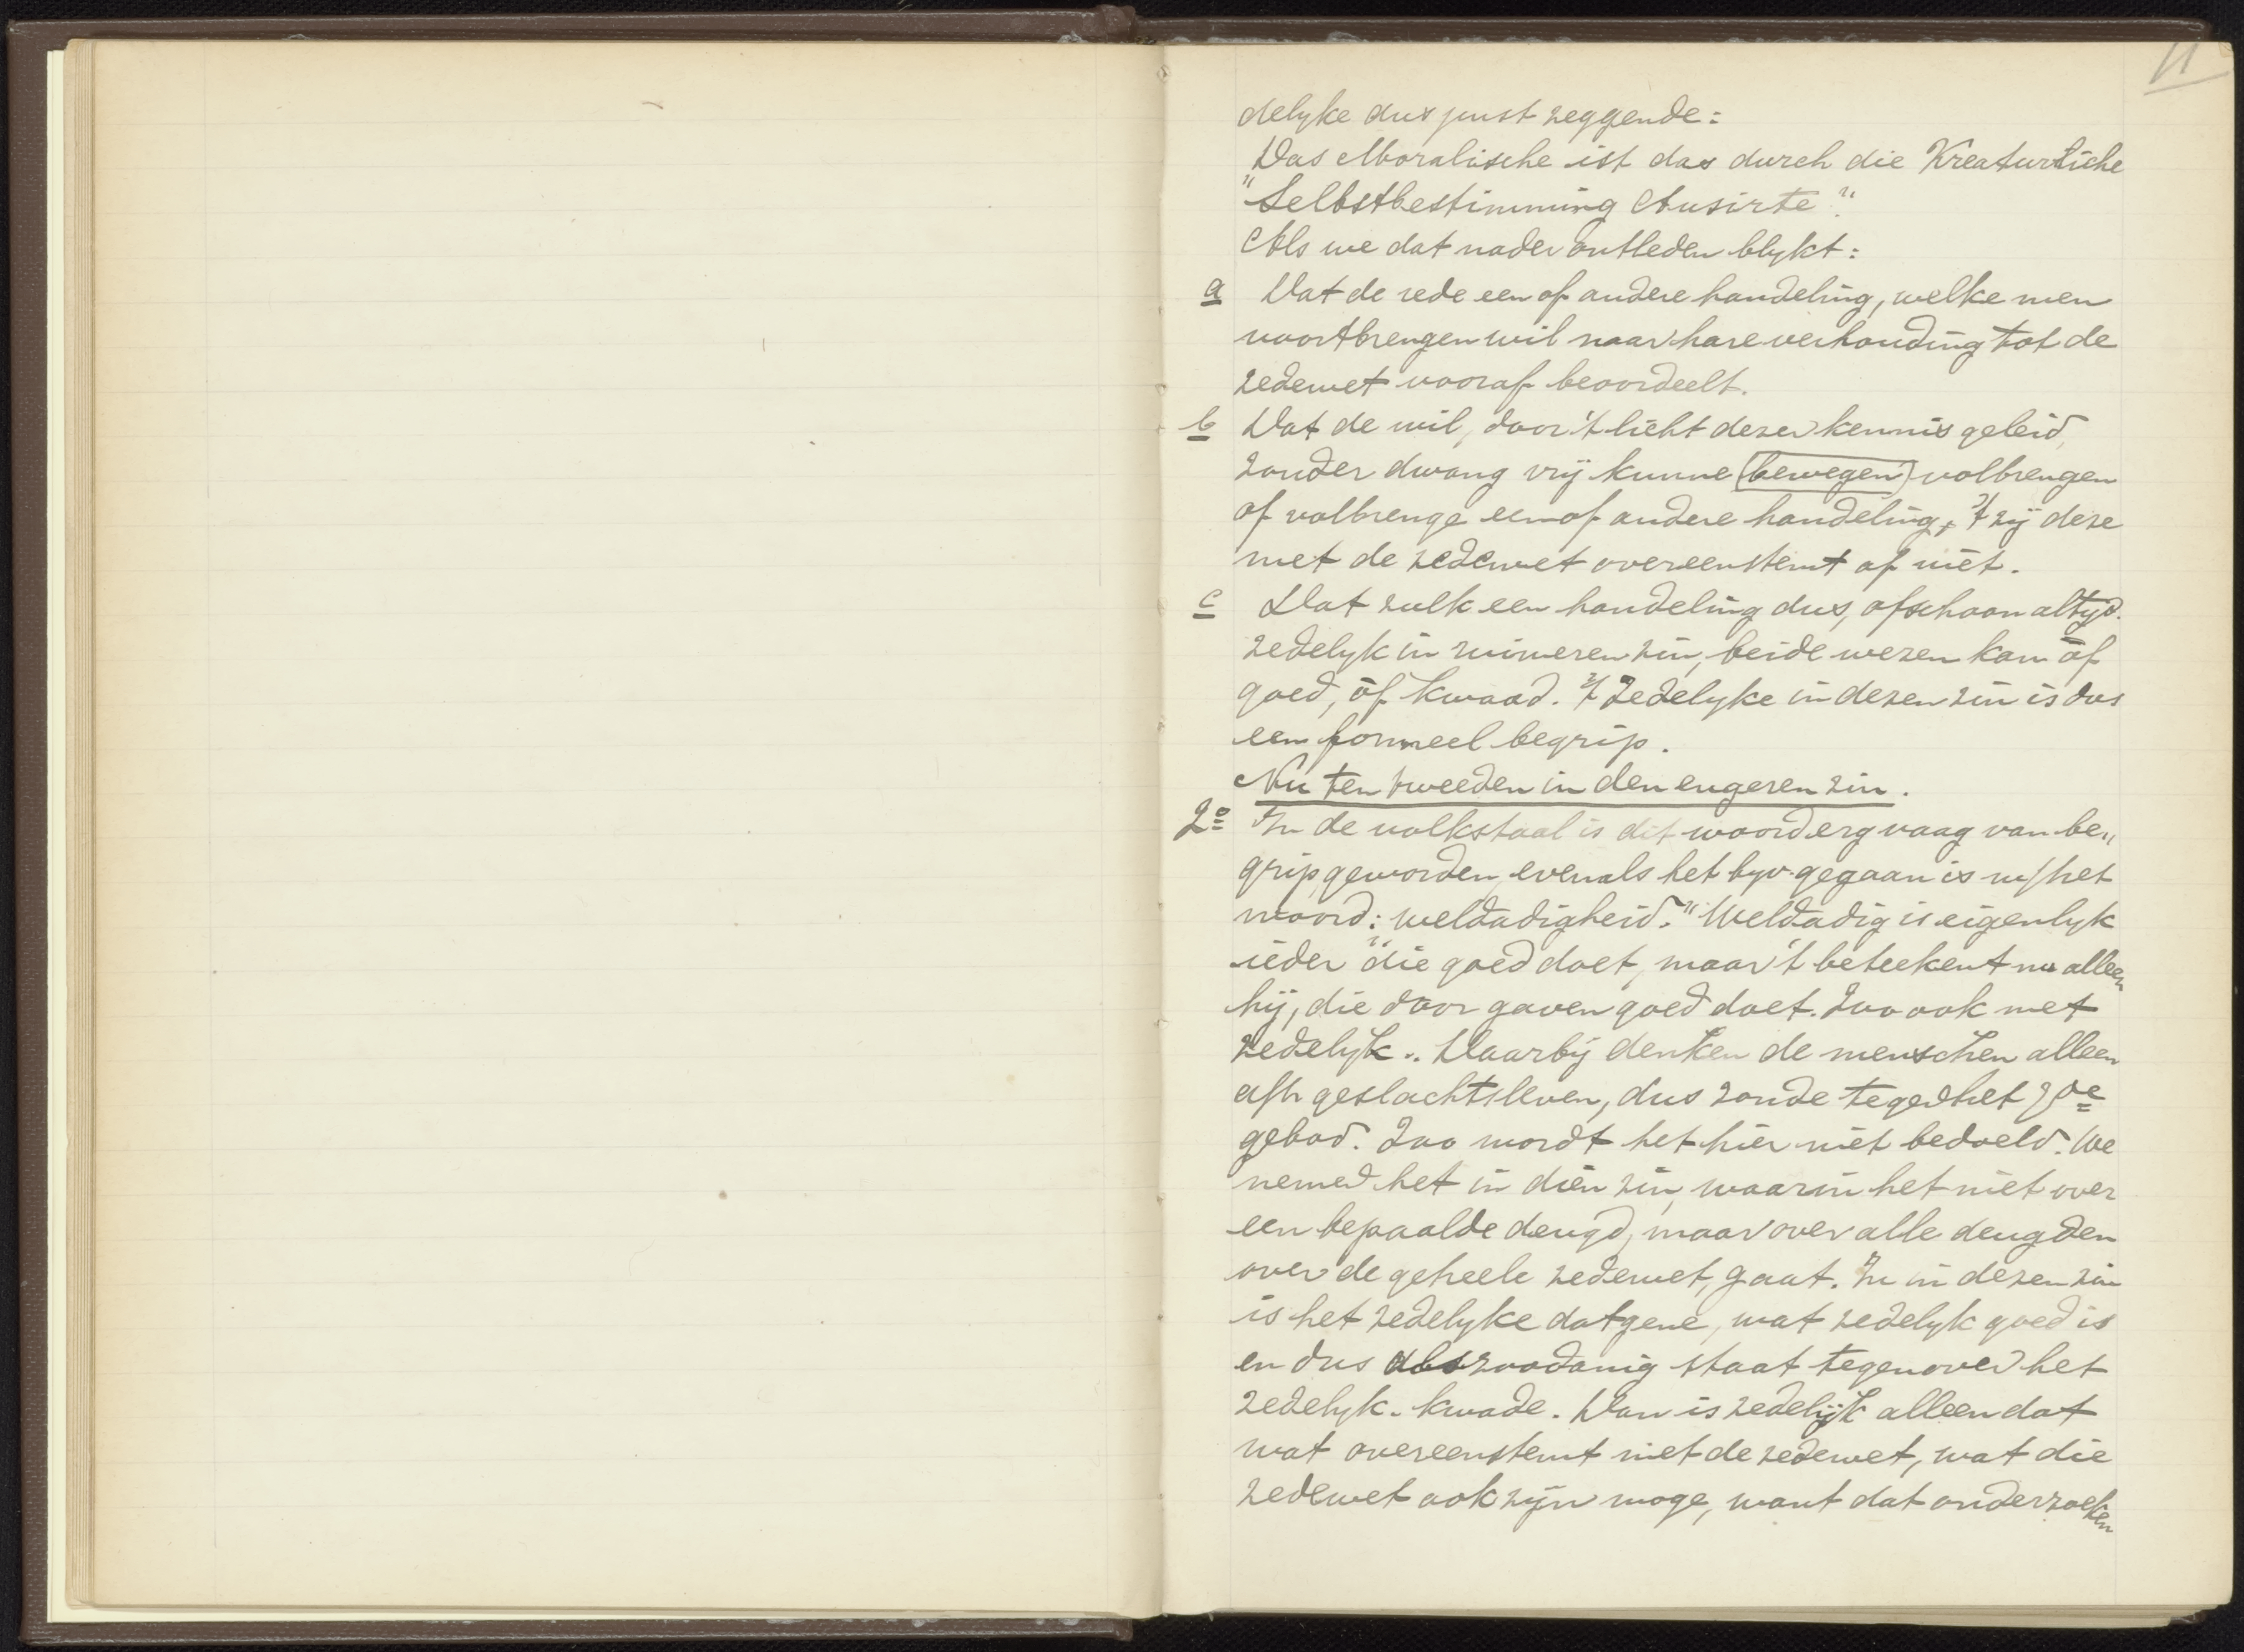 11
delyke dus juist zeggende:
Das Moralische ist das durch die Kreaturliche
"Selbstbestimming Ausirte".
Als we dat nader ontleden blykt:
a Dat de rede een of andere handeling, welke men
voortbrengen wil naar hare verhouding tot de
zedewet vooraf beoordeelt.
b Dat de wil, door 't licht dezer kennis geleid,
zonder dwang vrij kunne (bewegen) volbrengen
of volbrenge een of andere handeling, 't zij deze
met de zedewet overeenstemt of niet.
c Dat zulk een handeling dus, ofschoon altyd
zedelyk in ruimeren zin, beide wezen kan òf
goed, òf kwaad. 't Zedelyke in dezen zin is dus
een formeel begrip.
Nu ten tweeden in den engeren zin.
2o In de volkstaal is dit woord erg vaag van be„
grip geworden, evenals het byv. gegaan is m/het
woord: "weldadigheid." Weldadig is eigenlyk
ieder die goed doet, maar 't beteekent nu alleen
hij, die door gaven goed doet. Zoo ook met
zedelyk. Daarbij denken de menschen alleen
a/h geslachtsleven, dus zonde tegen het 7de
gebod. Zoo wordt het hier niet bedoeld. We
nemen het in dien zin, waarin het niet over
een bepaalde deugd, maar over alle deugden
over de geheele zedewet, gaat. In in dezen zin
is het zedelyke datgene, wat zedelyk goed is
en dus als zoodanig staat tegenover het
zedelyk-kwade. Dan is zedelijk alleen dat
wat overeenstemt met de zedewet, wat die
zedewet ook zijn moge, want dat onderzoeken